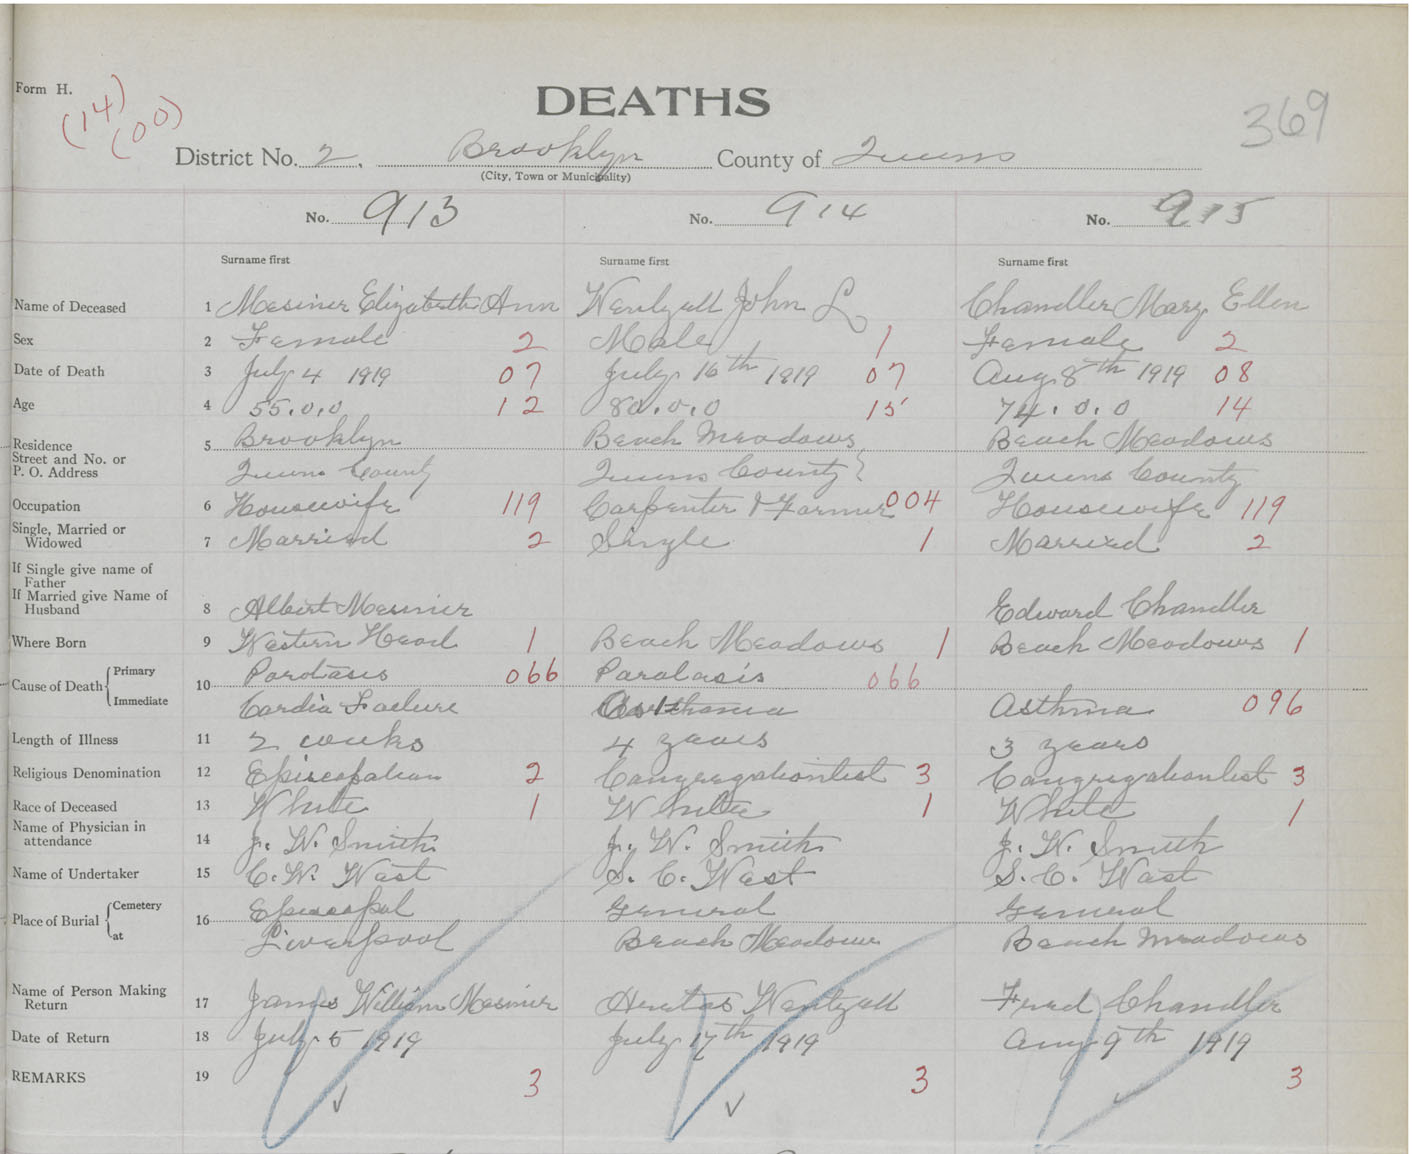 Form H.
(14)
(00)
DEATHS
369
District No. 2, Brooklyn County of Queens
(City, Town or Municipality)
No. 913 No. 914 No. 915
Surname first Surname first Surname first
Name of Deceased 1 Mesiner Elizabeth Ann Wentzell John L Chandler Mary Ellen
Sex 2 Female 2 Male 1 Female 2
Date of Death 3 July 4 1919 07 July 16th 1919 07 Aug 8th 1919 08
Age 4 55.0.0 12 80.0.0 15 74.0.0 14
Residence 5 Brooklyn Beach Meadows Beach Meadows
Street and No. or
P. O. Address Queens County Queens County Queens County
Occupation 6 Housewife 119 Carpenter & Farmer 004 Housewife 119
Single, Married or
Widowed 7 Married 2 Single 1 Married 2
If Single give name of
Father
If Married give Name of
Husband 8 Albert Mesiner Edward Chandler
Where Born 9 Western Head 1 Beach Meadows 1 Beach Meadows 1
Cause of Death 10 Primary 066 Paralasis 066
Immediate Cardia Faelure Asthma 096
Length of Illness 11 2 weeks 4 years 3 years
Religious Denomination 12 Episcopalian 2 Congregationlist 3 Congregationlist 3
Race of Deceased 13 White 1 White 1 White 1
Name of Physician in
attendance 14 J. W. Smith J. W. Smith J. W. Smith
Name of Undertaker 15 C. W. West S. C. West S. C. West
Place of Burial 16 Cemetery Episcopal General General
at Liverpool Beach Meadows Beach Meadows
Name of Person Making
Return 17 James William Mesiner Wentzell Fred Chandler
Date of Return 18 July 5 1919 July 17th 1919 Aug 9th 1919
REMARKS 19 3 3 3